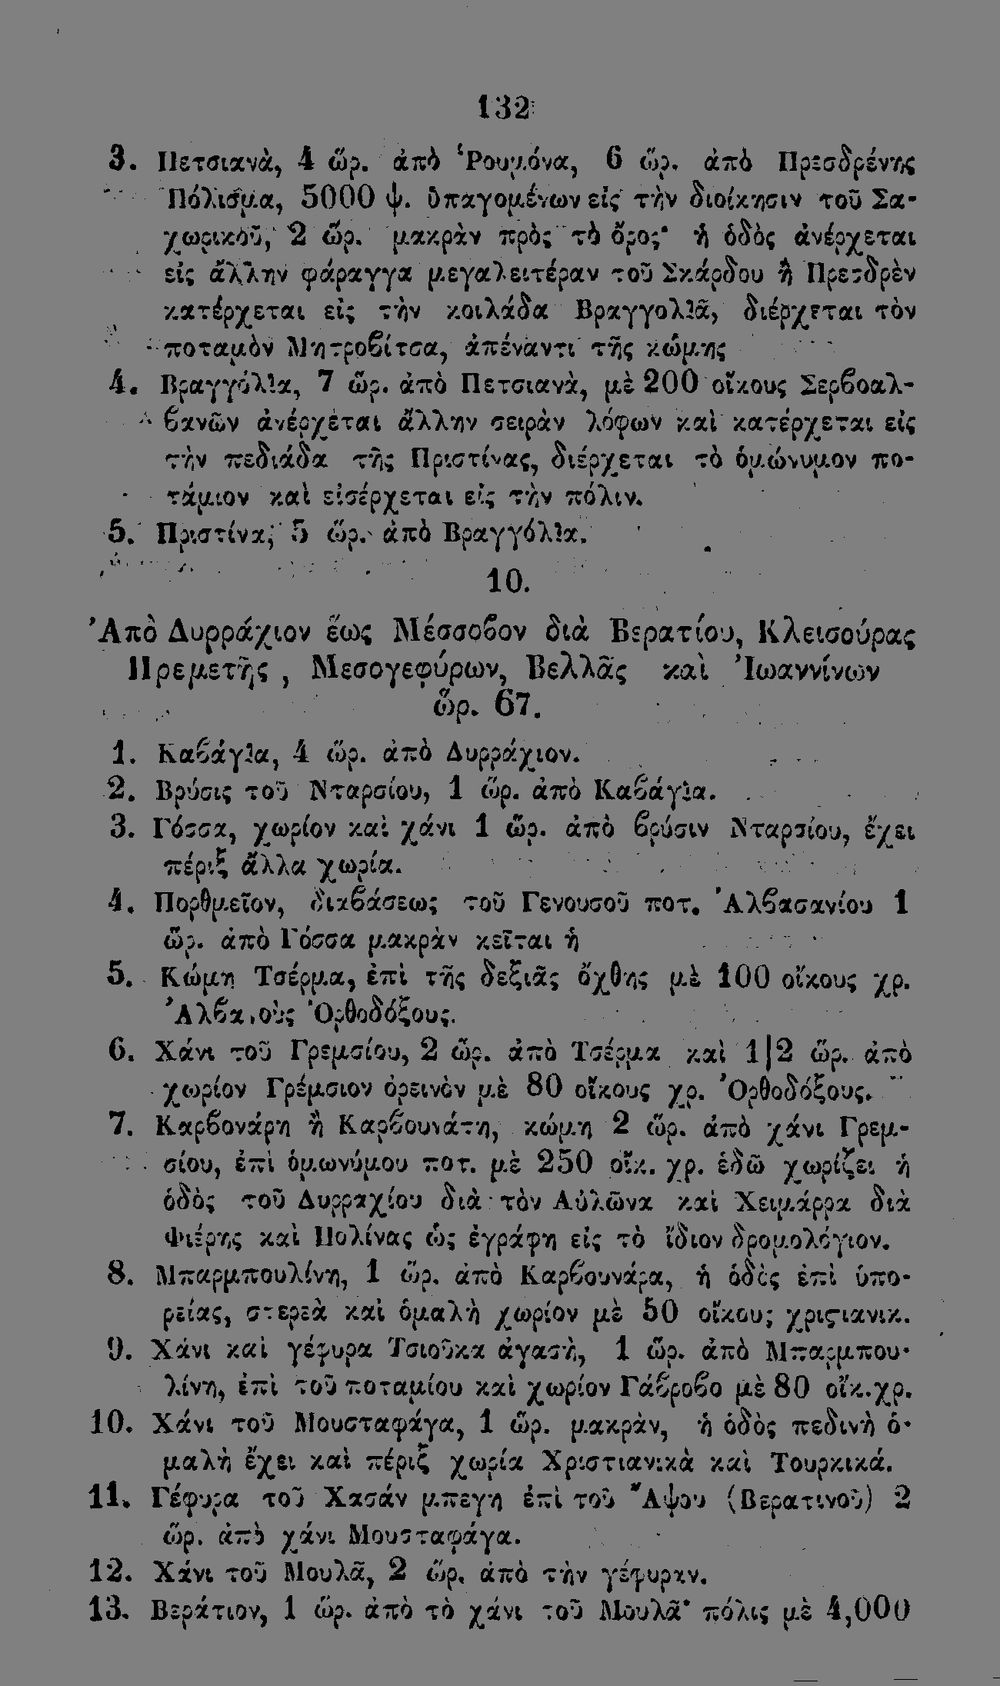 132
3. Πετσιανὰ, 4 ὥρ. ἀπὸ Ῥουμόνα, 6 ὥρ. ἀπὸ Πρεσδρένης
Πόλισμα, 5000 ψ. ὑπαγομένων εἰς τὴν διοίκησιν τοῦ Σα-
χωρικοῦ, 2 ὥρ. μακρὰν πρὸς τὸ ὄρος· ἡ ὁδὸς ἀνέρχεται
εἰς ἄλλην φάραγγα μεγαλειτέραν τοῦ Σκάρδου ἢ Πρεσδρὲν
κατέρχεται εἰς τὴν κοιλάδα Βραγγολιᾶ, διέρχεται τὸν
ποταμὸν Μητροβίτσα, ἀπέναντι τῆς κώμης
4. Βραγγόλια, 7 ὥρ. ἀπὸ Πετσιανὰ, μὲ 200 οἴκους Σερβοαλ-
βανῶν ἀνέρχεται ἄλλην σειρὰν λόφων καὶ κατέρχεται εἰς
τὴν πεδιάδα τῆς Πριστίνας, διέρχεται τὸ ὁμώνυμον πο-
τάμιον καὶ εἰσέρχεται εἰς τὴν πόλιν.
5. Πριστίνα, 5 ὥρ. ἀπὸ Βραγγόλια.
10.
Ἀπὸ Δυρράχιον ἕως Μέσσοβον διὰ Βερατίου, Κλεισούρας
Πρεμετῆς, Μεσογεφύρων, Βελλᾶς καὶ Ἰωαννίνων
ὥρ. 67.
1. Καβάγια, 4 ὥρ. ἀπὸ Δυρράχιον.
2. Βρύσις τοῦ Νταρσίου, 1 ὥρ. ἀπὸ Καβάγια.
3. Γόσσα, χωρίον καὶ χάνι 1 ὥρ. ἀπὸ βρύσιν Νταρσίου, ἔχει
πέριξ ἄλλα χωρία.
4. Πορθμεῖον, διαβάσεως τοῦ Γενουσοῦ ποτ. Ἀλβασανίου 1
ὥρ. ἀπὸ Γόσσα μακρὰν κεῖται ἡ
5. Κώμη Τσέρμα, ἐπὶ τῆς δεξιᾶς ὄχθης μὲ 100 οἴκους χρ.
Ἀλβανοὺς Ὀρθοδόξους.
6. Χάνι τοῦ Γρεμσίου, 2 ὥρ. ἀπὸ Τσέρμα καὶ 1|2 ὥρ. ἀπὸ
χωρίον Γρέμσιον ὀρεινὸν μὲ 80 οἴκους χρ. Ὀρθοδόξους.
7. Καρβονάρη ἢ Καρβουνάτη, κώμη 2 ὥρ. ἀπὸ χάνι Γρεμ-
σίου, ἐπὶ ὁμωνύμου ποτ. μὲ 250 οἴκ. χρ. ἐδῶ χωρίζει ἡ
ὁδὸς τοῦ Δυρραχίου διὰ τὸν Αὐλῶνα καὶ Χειμάρρα διὰ
Φιέρης καὶ Πολίνας ὡς ἐγράφη εἰς τὸ ἴδιον δρομολόγιον.
8. Μπαρμπουλίνη, 1 ὥρ. ἀπὸ Καρβουνάρα, ἡ ὁδὸς ἐπὶ ὑπο-
ρείας, στερεὰ καὶ ὁμαλὴ χωρίον μὲ 50 οἴκους χριϛιανικ.
9. Χάνι καὶ γέφυρα Τσιοῦκα ἀγασὴ, 1 ὥρ. ἀπὸ Μπαρμπου-
λίνη, ἐπὶ τοῦ ποταμίου καὶ χωρίον Γάβροβο μὲ 80 οἴκ.χρ.
10. Χάνι τοῦ Μουσταφάγα, 1 ὥρ. μακρὰν, ἡ ὁδὸς πεδινὴ ὁ-
μαλὴ ἔχει καὶ πέριξ χωρία Χριστιανικὰ καὶ Τουρκικά.
11. Γέφυρα τοῦ Χασάν μπεγη ἐπὶ τοῦ Ἄψου (Βερατινοῦ) 2
ὥρ. ἀπὸ χάνι Μουσταφάγα.
12. Χάνι τοῦ Μουλᾶ, 2 ὥρ. ἀπὸ τὴν γέφυραν.
13. Βεράτιον, 1 ὥρ. ἀπὸ τὸ χάνι τοῦ Μουλᾶ· πόλις μὲ 4,000